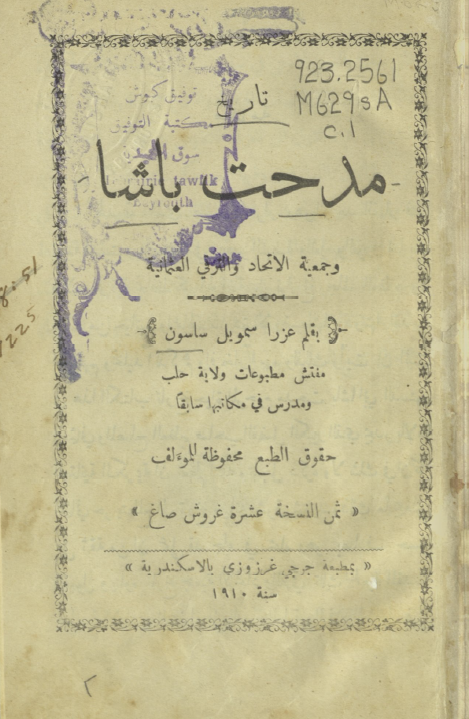 923.2561
M629sA
c.1
تاريخ
توفيق كيوش
مكتبة التوفيق
سوق
مدحت باشا
Tawfik
Beyrouth
وجمعية الاتحاد والترقي العثمانية
بقلم عزرا سموبل ساسون
مفتش مطبوعات ولاية حلب
ومدرس في مكاتبها سابقًا
حقوق الطبع محفوظة للموءلف
« ثمن النسخة عشرة غروش صاغ »
« بمطبعة جرجي غرزوزي بالاسكندرية »
سنة ١٩١٠
٢